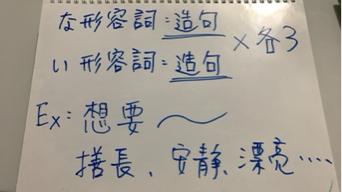 な形容詞：造句 ×各3
い形容詞：造句
Ex：想要～
擅長、安靜、漂亮....